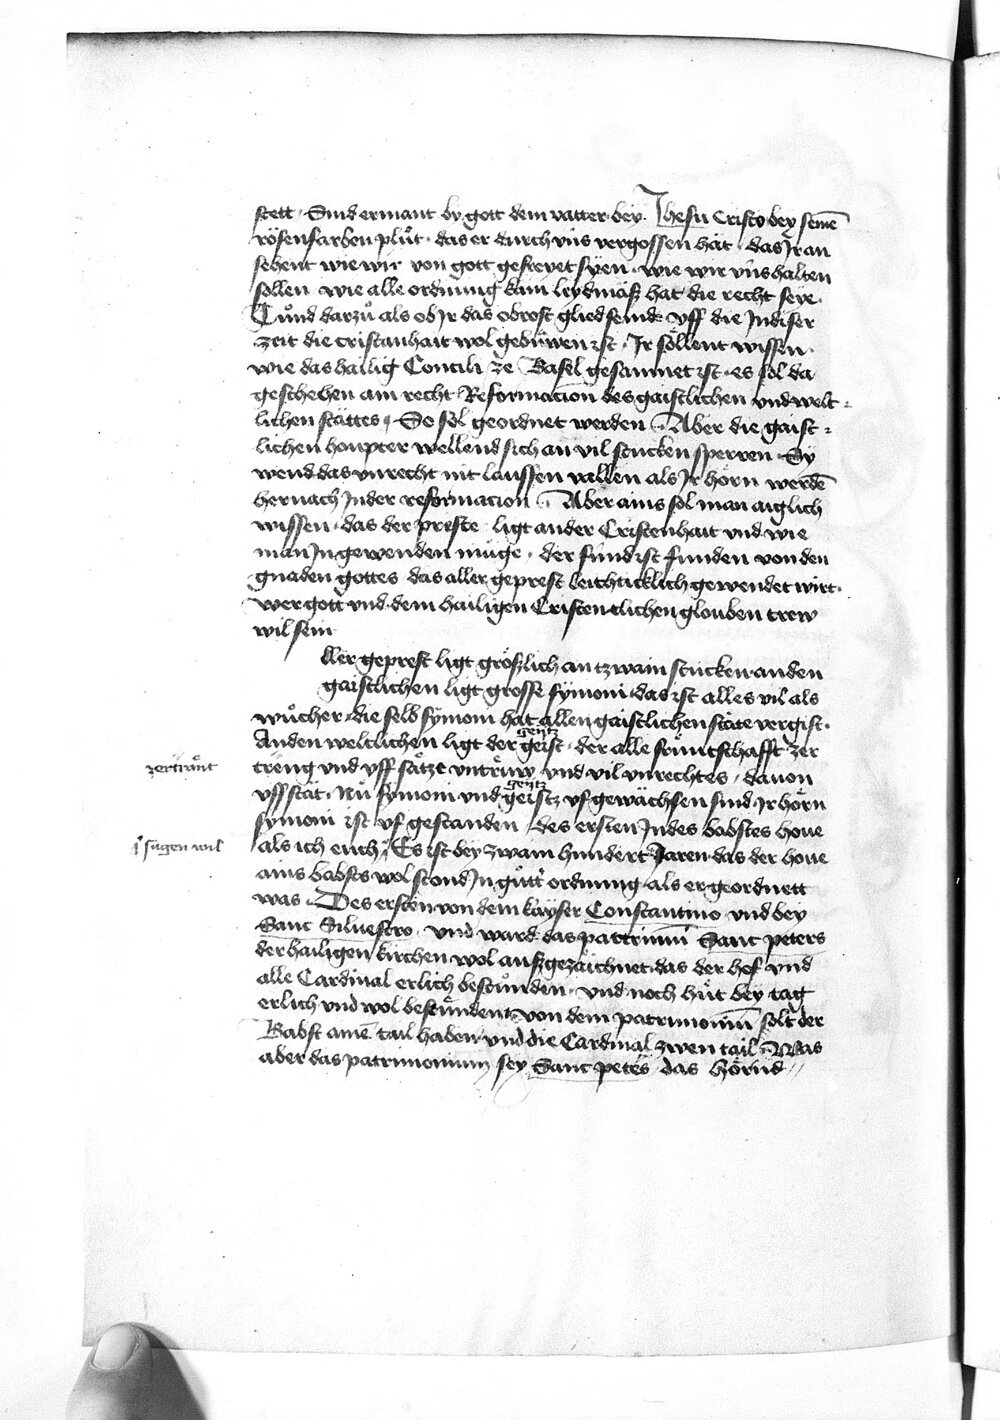 stett · Sind ermant by gott dem vatter · bey · Jhesu Cristo bey semē
rösenfarben plůt · das er durch vns vergossen hat · das Jr an
sehent wie wir von gott gefreyet syen · wie wir vns halten
söllen wie alle ordnung kain leydmäß hat die recht seye ·
Tůnd darzů als ob Jr das obrost glied seind · vff die Indiser
zeit die cristanhait wol gebuwen ist · Jr söllent wissen ·
wie das hailig Concili ze Basel gesamnet ist · es sol da
geschehen ain recht Reformacion des gaistlichen vnd welt =
lichen stättes · So sol geordnet werden · Aber die gaist =
lichen houpter wellend sich an vil stucken sperren · Sy
wend das vnrecht nit laussen vallen als Jr hörn werdē
hernach In der reformacion · Aber ains sol man aiglich
wissen · das der preste ligt an der Cristenhait vnd wie
man In gewenden müge · der fund ist funden von den
gnaden gottes das aller geprest leichticklich gewendet wirt ·
wer gott vnd dem hailigen Cristentlichen glouben trew
wil sein
ller geprest ligt größlich an tzwain stucken · an den
gaistlichen ligt grosse symoni · das ist alles vil als
wůcher · die selb symoni hat allen gaistlichen stäte vergift ·
An den weltlichen ligt der geist · der alle fründtschafft zer
geytz
zertränt
treng vnd vff sätze vntrüw vnd vil vnrechtes · dauon
vff stät · Nu symoni vnd geistz vf gewächsen sind · Jr hörn
geytz
symoni ist vf gestanden · des ersten In des babstes houe
als ich euch · Es ist bey zwain hundert Jaren · das der houe
sagen wil
ains babsts wol stond In gůtt ordnung als er geordnett
was · Des ersten von dem kayser Constantino vnd bey
Sanc Siluestro · vnd ward das pattrimm̄ Sanc peters
der hailigen kirchen wol außgezaichnet · das der hof vnd
alle Cardinal erlich bestůnden · vnd noch hüt bey tag
erlich vnd wol bestůndent · von dem patrimoniū solt der
Babst ainē tail haben vnd die Cardinal zwen tail · Was
aber das patrimonium sey Sanc petes · das hörnd